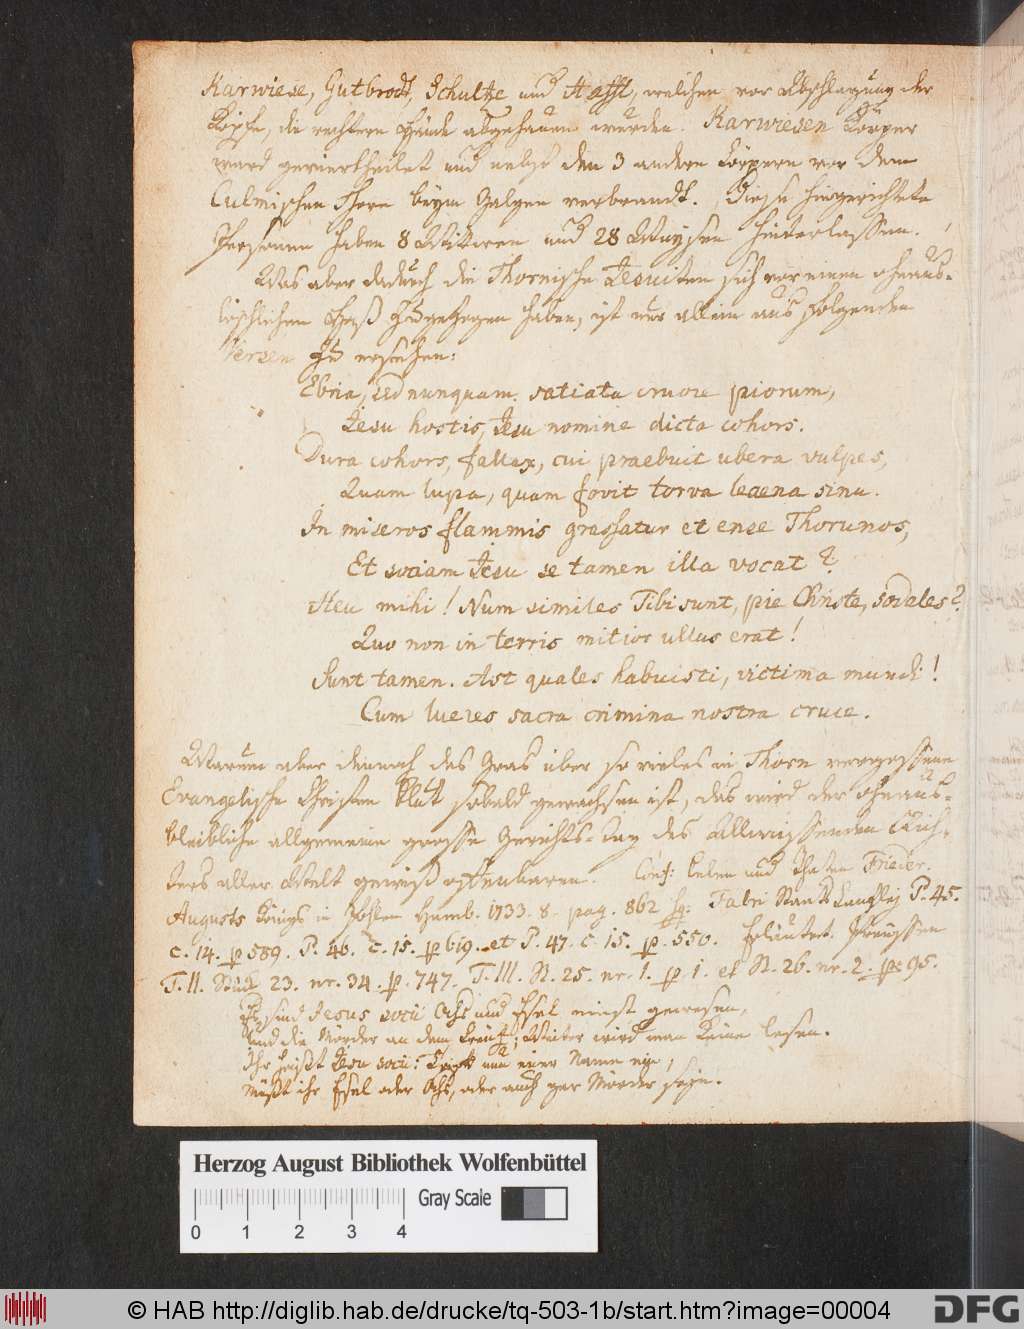 Karwiese, Gutbrodt, Schultze und Hafft, welchen vor Abschlagung der
Köpfe, die rechten Hände abgehauen wurden. Karwiesen Körper
ward geviertheilet und nebst den 3 andern Cörpern vor dem
Culmischen Thore beym Galgen verbrandt. Diese hingerichtete
Personen haben 8 Wittwen und 28 Waysen hinterlassen.
Was aber dadurch die Thornische Jesuiten sich vor einen ohnaus-
löschlichen Haß zugezogen haben, ist nur allein aus folgenden
Versen zu ersehen:
Ebria, sed nunquam satiata cruore piorum,
Jesu hostis, Jesu nomine dicta cohors.
Dura cohors, fallax, cui praebuit ubera vulpes,
Quam lupa, quam fovit torva leaena sinu.
In miseros flammis grassatur et ense Thorunos,
Et sociam Jesu se tamen illa vocat?
Heu mihi! Num similes Tibi sunt, pie Christe, sodales?
Quo non in terris mitior ullus erat!
Sunt tamen. Ast quales habuisti, victima mundi!
Cum lueres sacra crimina nostra cruce.
Warum aber dennoch das Gras über so vieles in Thorn vergossene
Evangelische Christen Blut sobald gewachsen ist, das wird der ohnaus-
bleibliche allgemeine grosse Gerichts-tag des Allwissenden Rich-
ters aller Welt gewiß offenbaren. Conf: Leben und Thaten Frieder.
Augusts Königs in Pohlen Hamb. 1733. 8. pag. 862 sq. Fabri Staats Cantzley P. 45.
c. 14. p 589. P. 46. c. 15. p 619. et P. 47. c. 15. p. 550. Erläutert. Preussen
T. II. Stück 23. nr. 34. p. 747. T. III. St. 25. nr. 1. p 1. et St. 26. nr. 2. p. 95.
Es sind Jesus socii Ochs und Esel einst gewesen,
Und die Mörder an dem Creutz; Weiter wird man keine lesen.
Ihr heißt Jesu socii: nun euer Name ein;
Müßt ihr Esel oder Ochs, oder auch gar Mörder seyn.
Herzog August Bibliothek Wolfenbüttel
Gray Scale
0 1 2 3 4
© HAB http://diglib.hab.de/drucke/tq-503-1b/start.htm?image=00004
DFG